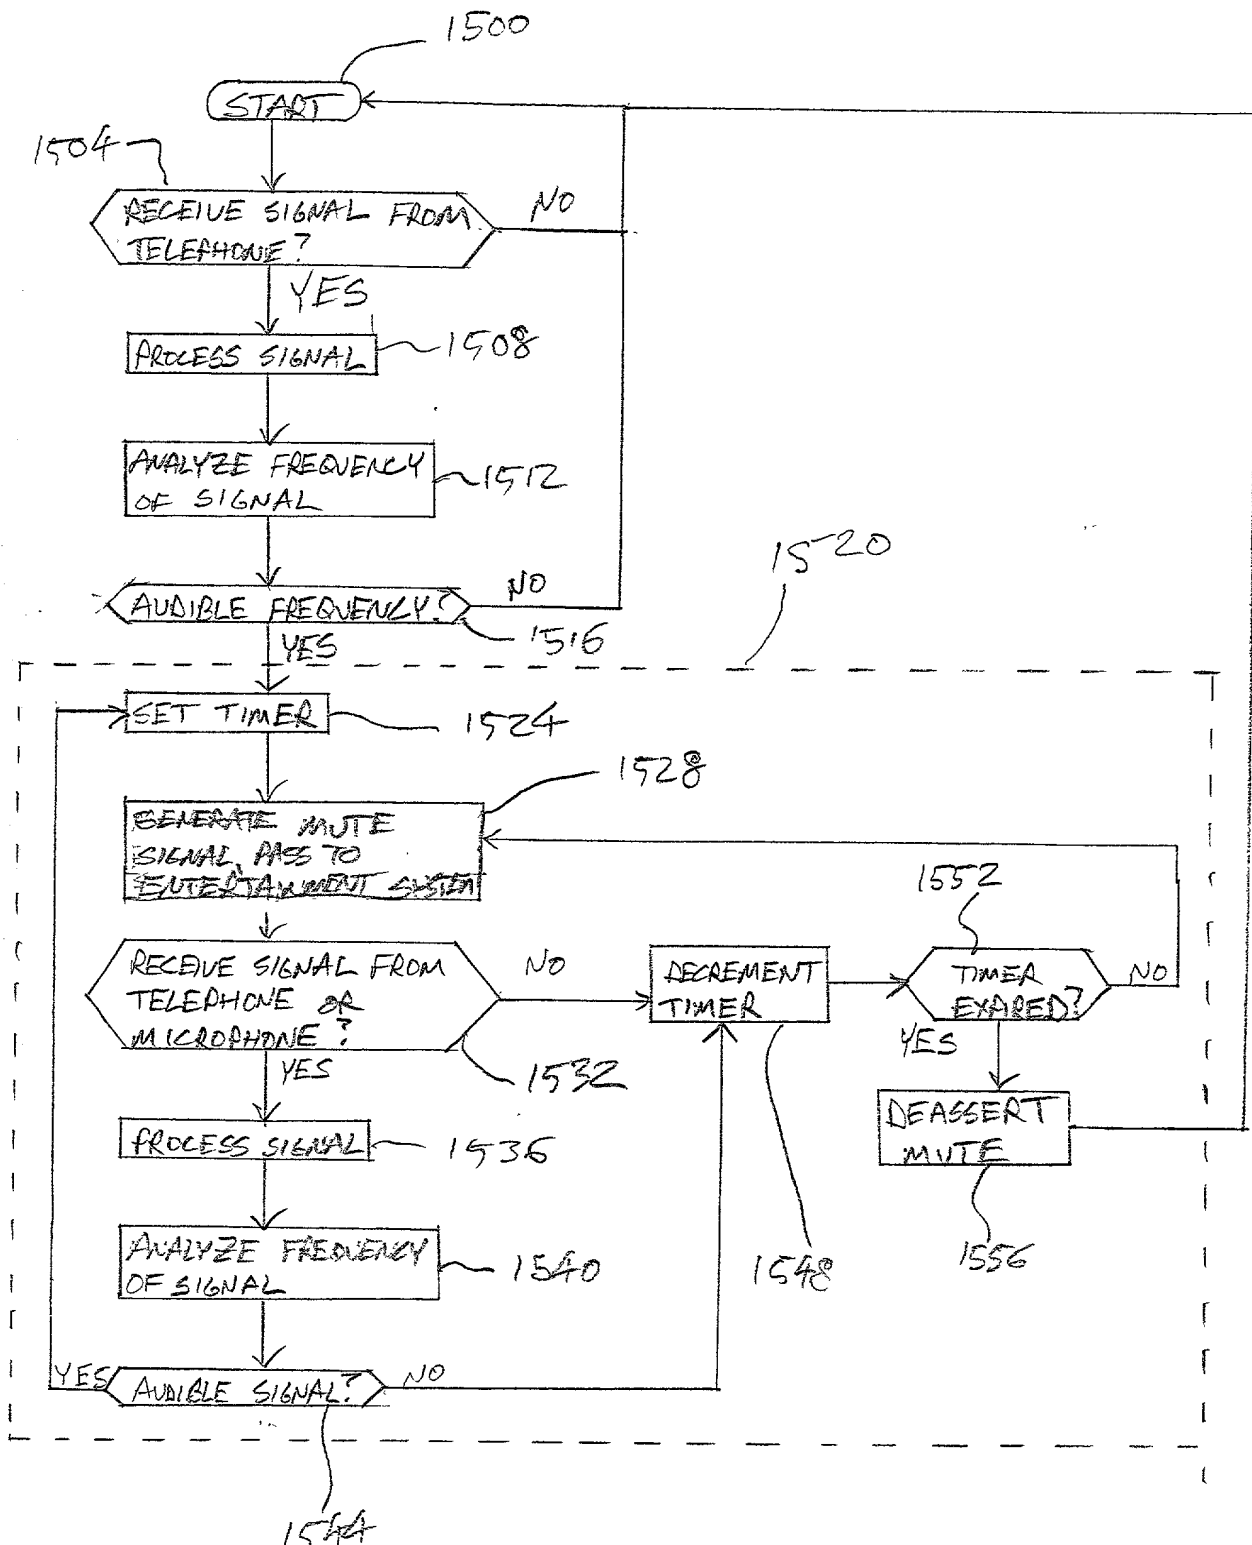 1500
START
1504
RECEIVE SIGNAL FROM
TELEPHONE?
NO
YES
PROCESS SIGNAL
1508
ANALYZE FREQUENCY
OF SIGNAL
1512
1520
AUDIBLE FREQUENCY?
NO
1516
YES
SET TIMER
1524
1528
GENERATE MUTE
SIGNAL, PASS TO
ENTERTAINMENT SYSTEM
1552
RECEIVE SIGNAL FROM
TELEPHONE OR
MICROPHONE?
NO
DECREMENT
TIMER
TIMER
EXPIRED?
NO
YES
YES
1532
DEASSERT
MUTE
PROCESS SIGNAL
1536
ANALYZE FREQUENCY
OF SIGNAL
1540
1548
1556
YES
AUDIBLE SIGNAL?
NO
1544